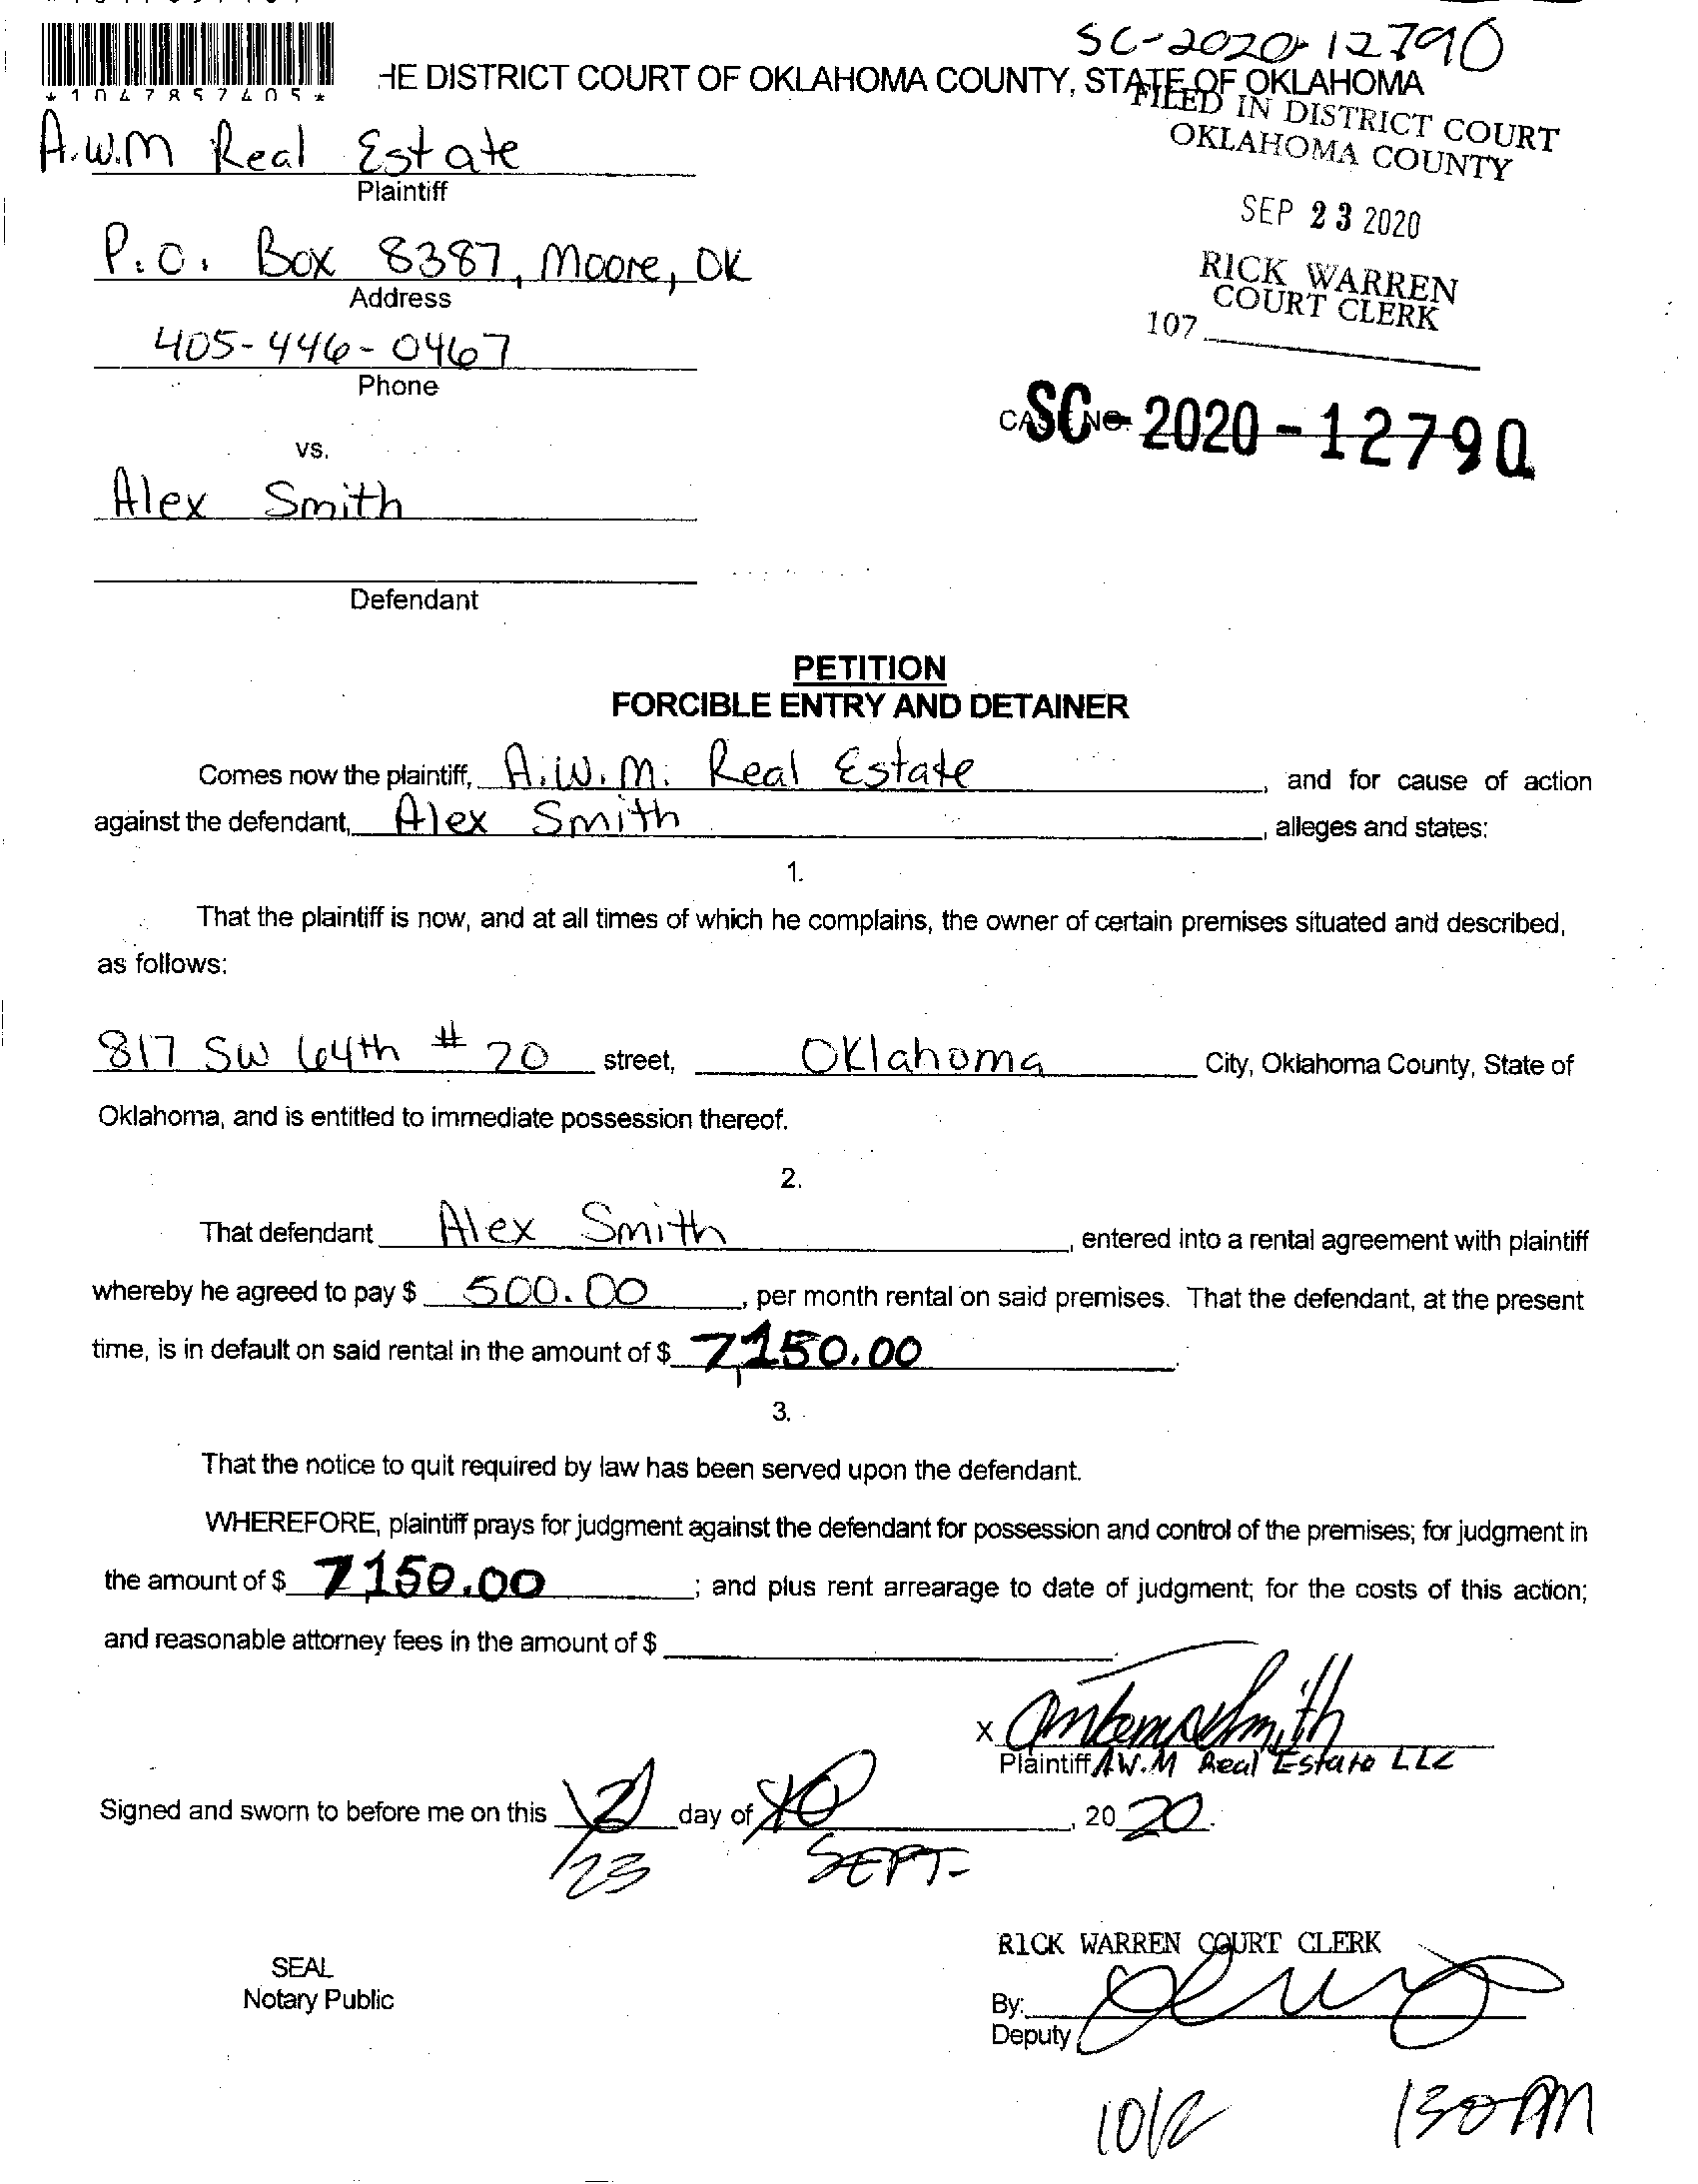 SC-2020-12790
*1047857405*
HE DISTRICT COURT OF OKLAHOMA COUNTY, STATE OF OKLAHOMA
FILED IN DISTRICT COURT
OKLAHOMA COUNTY
A.W.M Real Estate
Plaintiff
SEP 23 2020
P.O. Box 8387, Moore, OK
Address
RICK WARREN
COURT CLERK
107
405-446-0467
Phone
CASE NO. SC-2020-12790
vs.
Alex Smith
Defendant
PETITION
FORCIBLE ENTRY AND DETAINER
Comes now the plaintiff, A.W.M. Real Estate, and for cause of action
against the defendant, Alex Smith, alleges and states:
1.
That the plaintiff is now, and at all times of which he complains, the owner of certain premises situated and described,
as follows:
817 SW 64th # 20 street, Oklahoma City, Oklahoma County, State of
Oklahoma, and is entitled to immediate possession thereof.
2.
That defendant Alex Smith, entered into a rental agreement with plaintiff
whereby he agreed to pay $ 500.00, per month rental on said premises. That the defendant, at the present
time, is in default on said rental in the amount of $ 7,150.00.
3.
That the notice to quit required by law has been served upon the defendant.
WHEREFORE, plaintiff prays for judgment against the defendant for possession and control of the premises; for judgment in
the amount of $ 7,150.00; and plus rent arrearage to date of judgment; for the costs of this action;
and reasonable attorney fees in the amount of $
X
Plaintiff A.W.M Real Estate LLC
Signed and sworn to before me on this day of, 2020.
23 SEPT-
RICK WARREN COURT CLERK
SEAL
Notary Public
By:
Deputy
10/2 130 PM